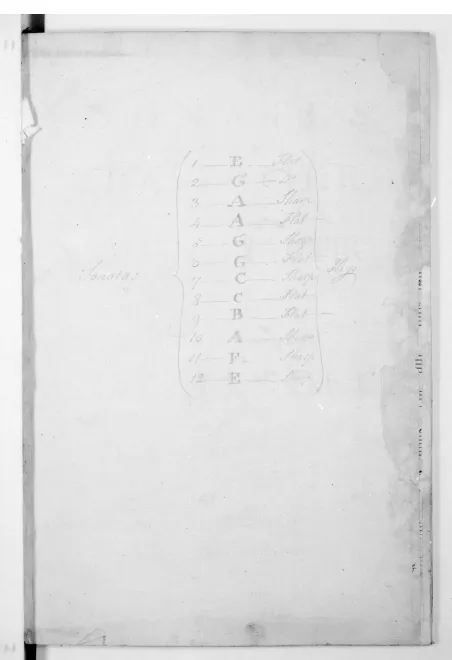 1 E Flat
2 G Do
3 A Sharp
4 A Flat
5 G Sharp
6 G Flat
Sonatas 7 C Sharp Key
8 C Flat
9 B Flat
10 A Sharp
11 F Sharp
12 E Sharp